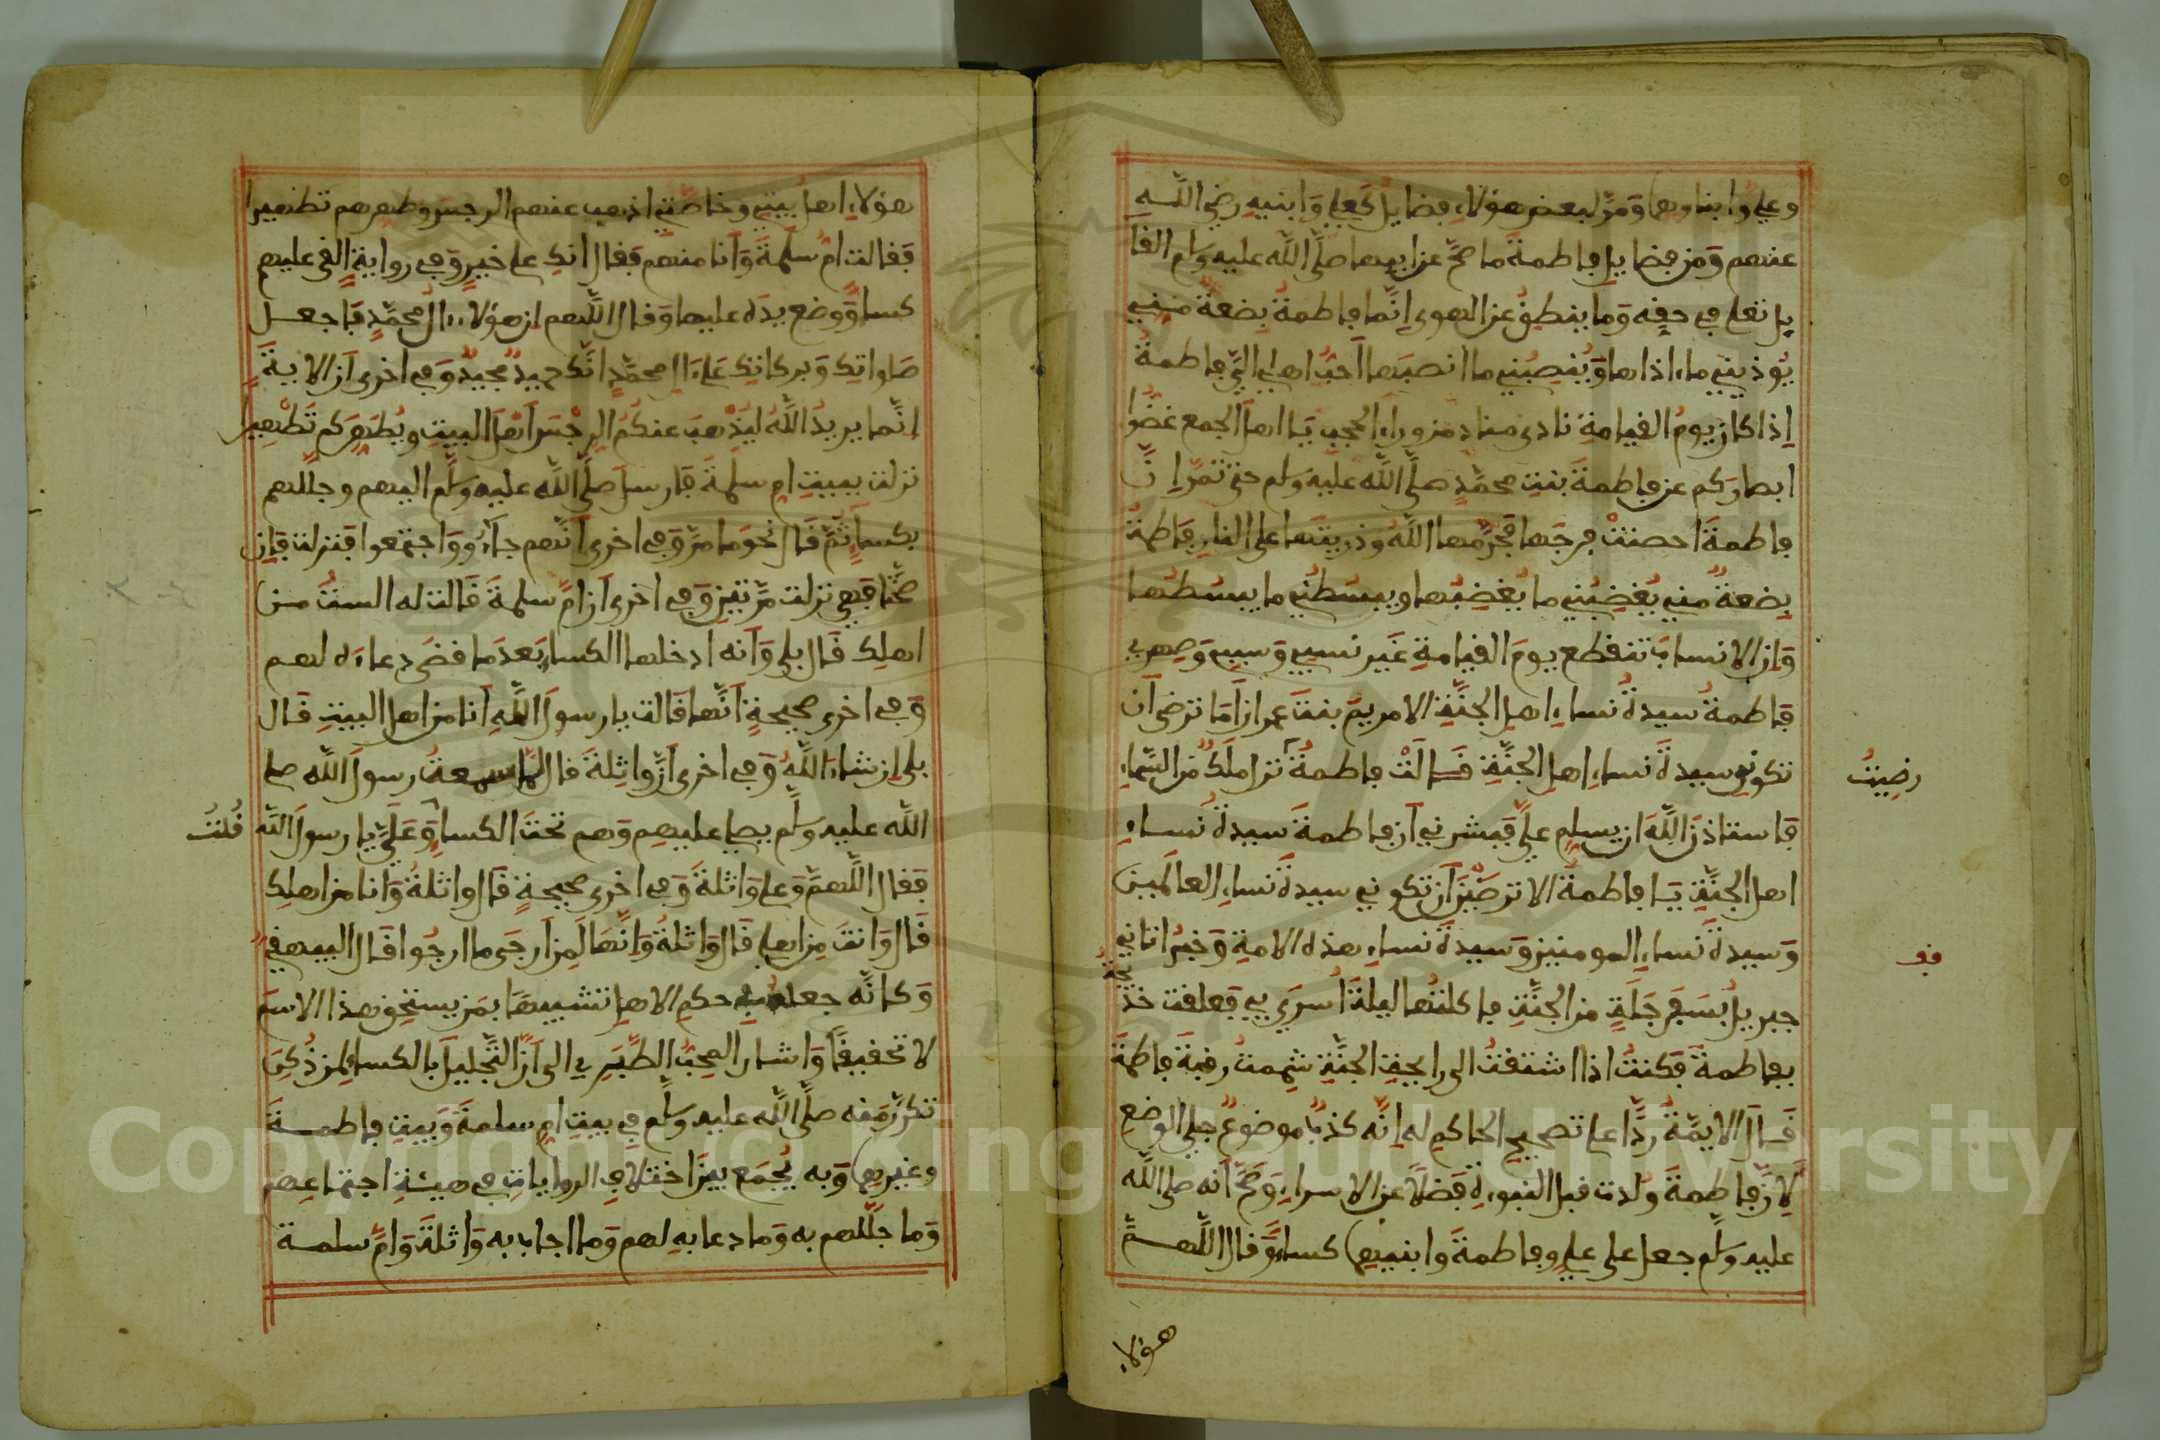 وعلي وابناوهما ومر لبعض هؤلاء فضايل كعلي وابنيه رضي الله
عنهم ومن فضايل فاطمة ما صح عن ابيها صلى الله عليه وسلم القا
يل تعلى في حقه وما ينطق عن الهوى انما فاطمة بضعة مني
يوذيني ما ءاذاها وينصبني ما انصبها احب اهلي الي فاطمة
اذا كان يوم القيامة نادى مناد من وراء الحجب يا اهل الجمع غضوا
ابصاركم عن فاطمة بنت محمد صلى الله عليه وسلم حتى تمر ان
فاطمة احصنت فرجها فحرمها الله وذريتها على النار فاطمة
بضعة مني يغضبني ما يغضبها ويبسطني ما يبسطها
وان الانساب تنقطع يوم القيامة غير نسبي وسببي وصهري
فاطمة سيدة نساء اهل الجنة الا مريم بنت عمران اما ترضى ان
تكوني سيدة نساء اهل الجنة قالت فاطمة نزل ملك من السماء
رضيت
فاستاذن الله ان يسلم علي فبشرني ان فاطمة سيدة نساء
اهل الجنة يا فاطمة الا ترضين ان تكوني سيدة نساء العالمين
وسيدة نساء المومنين وسيدة نساء هذه الامة وخبر اتاني
جبريل بسفرجلة من الجنة فاكلتها ليلة اسري بي فعلقت خد
يجة
بفاطمة فكنت اذا اشتقت الى رايحة الجنة شممت رقبة فاطمة
قال الايمة ردا على تصحيح الحاكم له انه كذب موضوع جلي الوضع
لان فاطمة ولدت قبل النبوءة فضلا عن الاسراء وصح انه صلى الله
عليه وسلم جعل على علي وفاطمة وابنيهما كساء وقال اللهم
هؤلاء
هؤلاء اهل بيتي وخاصتي اذهب عنهم الرجس وطهرهم تطهيرا
فقالت ام سلمة وانا منهم فقال انك على خير وفي رواية القى عليهم
كساء ووضع يده عليها وقال اللهم ان هؤلاء ءال محمد فاجعل
صلواتك وبركاتك على ءال محمد انك حميد مجيد وفي اخرى ان الاية
انما يريد الله ليذهب عنكم الرجس اهل البيت ويطهركم تطهيرا
نزلت ببيت ام سلمة فارسل صلى الله عليه وسلم اليهم وجللهم
بكساء ثم قال نحو ما مر وفي اخرى انهم جاءوا واجتمعوا فنزلت فان
صحتا فهي نزلت مرتين وفي اخرى ان ام سلمة قالت له الست من
اهلك قال بلى وانه ادخلها الكساء بعد ما قضى دعاءه لهم
وفي اخرى صحيحة انها قالت يا رسول الله انا من اهل البيت قال
بلى ان شاء الله وفي اخرى ان واثلة قال لما سمعت رسول الله صلى
الله عليه وسلم يصلي عليهم وهم تحت الكساء وعلي يا رسول الله
قلت
فقال اللهم وعلى واثلة وفي اخرى صحيحة قال واثلة وانا من اهلك
قال وانت من اهلي قال واثلة وانها لمن ارجى ما ارجوا قال البيهقي
وكانه جعله في حكم الاهل تشبيها بمن يستحق هذا الاسم
لا تحقيقا واشار المحب الطبري الى ان التجليل بالكساء لمن ذكر
تكرر منه صلى الله عليه وسلم في بيت ام سلمة وبيت فاطمة
وغيرهما وبه يجمع بين اختلاف الروايات في هيئة اجتماعهم
وما جللهم به وما دعا به لهم وما اجاب به واثلة وام سلمة